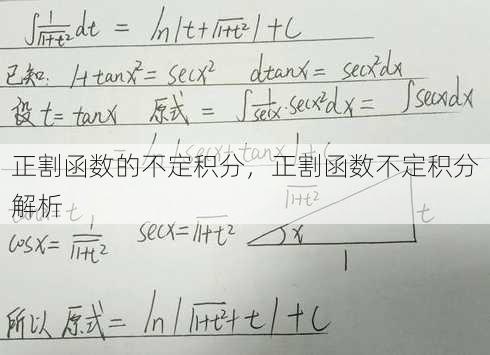 ∫1/√(1+t²) dt = ln|t+√(1+t²)|+C
已知: 1+tanx²=secx² dtanx=secx²dx
设 t=tanx 原式=∫1/secx·sec²xdx=∫secxdx
= ln|secx+tanx|+C
正割函数的不定积分，正割函数不定积分
解析
√(1+t²)
t
cosx=1/√(1+t²) secx=√(1+t²) x
1
所以 原式=ln|√(1+t²)+t|+C